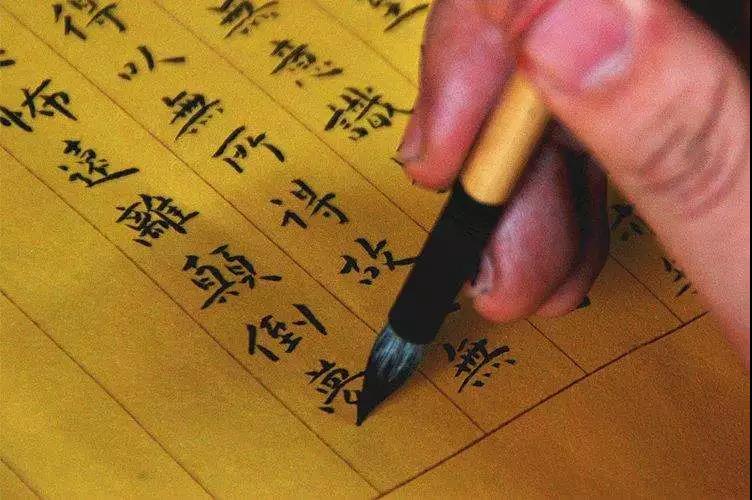 無意識
得以無所得故無
怖遠離顛倒夢